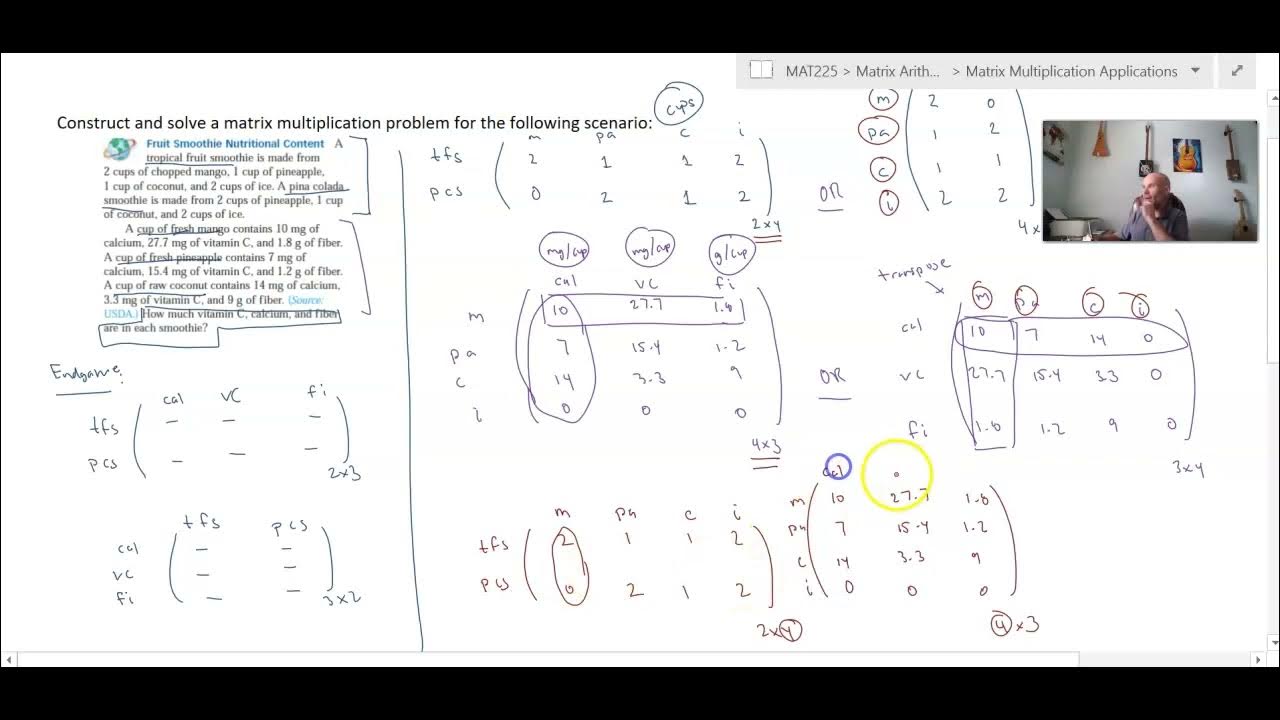 MAT225 > Matrix Arith... > Matrix Multiplication Applications
Construct and solve a matrix multiplication problem for the following scenario:
Fruit Smoothie Nutritional Content A
tropical fruit smoothie is made from
2 cups of chopped mango, 1 cup of pineapple,
1 cup of coconut, and 2 cups of ice. A pina colada
smoothie is made from 2 cups of pineapple, 1 cup
of coconut, and 2 cups of ice.
A cup of fresh mango contains 10 mg of
calcium, 27.7 mg of vitamin C, and 1.8 g of fiber.
A cup of fresh pineapple contains 7 mg of
calcium, 15.4 mg of vitamin C, and 1.2 g of fiber.
A cup of raw coconut contains 14 mg of calcium,
3.3 mg of vitamin C, and 9 g of fiber. (Source:
USDA.) How much vitamin C, calcium, and fiber
are in each smoothie?
Endgame:
cal vc fi
tfs
pcs
2x3
tfs pcs
cal
vc
fi
3x2
cups
m pa c i
tfs 2 1 1 2
pcs 0 2 1 2
2x4
OR
m 2 0
pa 1 2
c 1 1
i 2 2
4x
mg/cup mg/cup g/cup
cal vc fi
m 10 27.7 1.8
pa 7 15.4 1.2
c 14 3.3 9
i 0 0 0
4x3
OR
transpose
m pa c i
cal 10 7 14 0
vc 27.7 15.4 3.3 0
fi 1.8 1.2 9 0
3x4
m pa c i
tfs 2 1 1 2
pcs 0 2 1 2
2x4
cal
m 10 27.7 1.8
pa 7 15.4 1.2
c 14 3.3 9
i 0 0 0
4x3